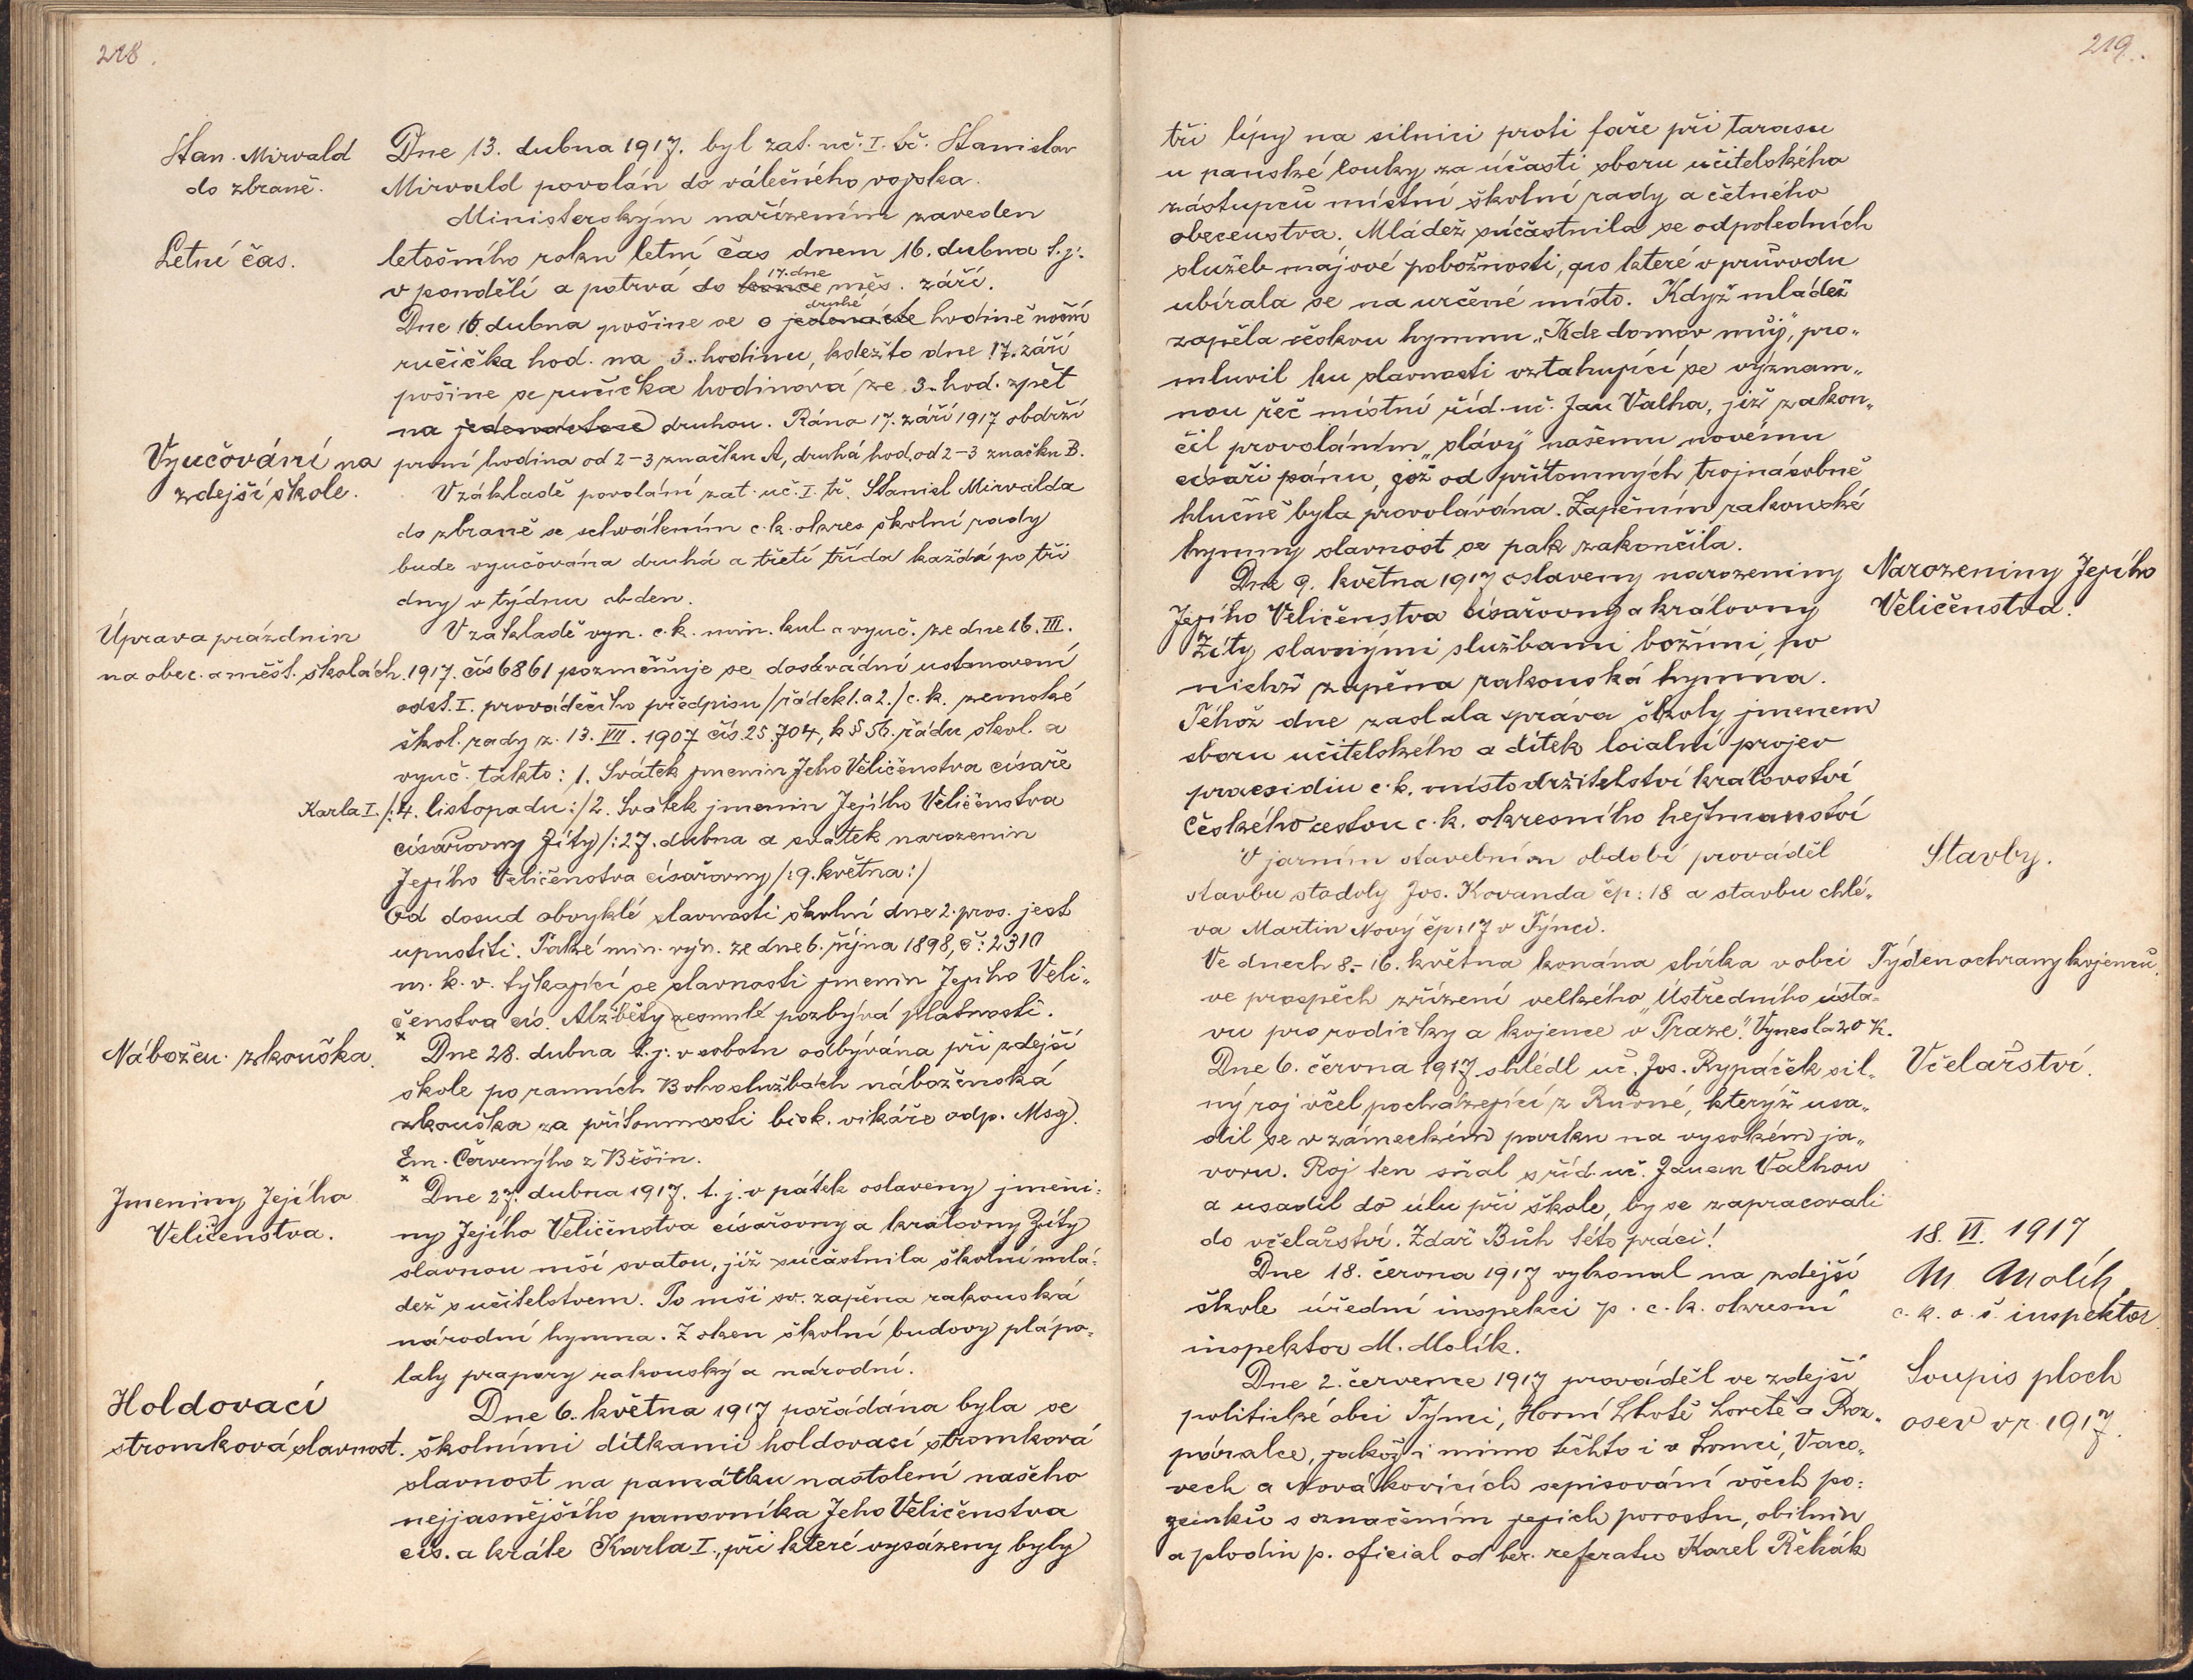 218.
Stan. Mirvald
do zbraně.
Dne 13. dubna 1917. byl zat. uč. I. tř. Stanislav
Mirvald povolán do válečného vojska.
Ministerským nařízením zaveden
Letní čas.
letošního roku letní čas dnem 16. dubna t. j.
v pondělí a potrvá do konce 17. dne měs. září.
Dne 16. dubna pošine se o jedenácté druhé hodině noční
ručička hod. na 3. hodinu, kdežto dne 17. září
pošine se ručička hodinová ze 3. hod. zpět
na jedenáctou druhou. Ráno 17. září 1917 obdrží
Vyučování na
zdejší škole.
první hodina od 2-3 značku A, druhá hod. od 2-3 značku B.
V základě povolání zat. uč. I. tř. Stanisl Mirvalda
do zbraně se schválením c. k. okres školní rady
bude vyučována druhá a třetí třída každá po tři
dny v týdnu obden.
Úprava prázdnin
na obec. a měšt. školách.
V základě vyn. c. k. min. kul a vyuč. ze dne 16. III.
1917. čís 6861 pozměňuje se dosavádní ustanovení
odst. I. prováděcího předpisu /řádek 1. a 2./ c. k. zemské
škol. rady z. 13. VII. 1907 čís. 25.704, k § 56. řádu škol. a
vyuč. takto: 1. Svátek jmenin Jeho Veličenstva císaře
Karla I. /:4. listopadu:/ 2. Svátek jmenin Jejího Veličenstva
císařovny Zity /:27. dubna a svátek narozenin
Jejího Veličenstva císařovny /:9. května:/
Od dosud obvyklé slavnosti školní dne 2. pros. jest
upustiti. Také min. vyn. ze dne 6. října 1898, č: 2310
m. k. v. týkající se slavnosti jmenin Jejího Veli„
čenstva cís. Alžběty zesnulé pozbývá platnosti.
Nábožen. zkouška.
× Dne 28. dubna t. j. v sobotu odbývána při zdejší
škole po ranních Bohoslužbách náboženská
zkouška za přítomnosti bisk. vikáře odp. Msg.
Em. Červenýho z Běšin.
Jmeniny Jejího
Veličenstva.
× Dne 27. dubna 1917. t. j. v pátek oslaveny jmeni:
ny Jejího Veličenstva císařovny a královny Zity
slavnou mší svatou, jíž súčastnila školní mlá:
dež s učitelstvem. Po mši sv. zapěna rakouská
národní hymna. Z oken školní budovy plápo„
laly prapory rakouský a národní.
Holdovací
stromková slavnost.
Dne 6. května 1917 pořádána byla se
školními dítkami holdovací stromková
slavnost na památku nastolení našeho
nejjasnějšího panovníka Jeho Veličenstva
cís. a krále Karla I., při které vysázeny byly
219.
tři lípy na silnici proti faře při tarasu
u panské louky za účasti sboru učitelského
zástupců místní školní rady a četného
obecenstva. Mládež súčastnila se odpoledních
služeb májové pobožnosti, po které v průvodu
ubírala se na určené místo. Když mládež
zapěla českou hymnu „Kde domov můj", pro„
mluvil ku slavnosti vztahující se význam„
nou řeč místní říd. uč. Jan Valha, již zakon„
čil provoláním „slávy" našemu novému
císaři pánu, jož od přítomných trojnásobně
hlučně byla provolávána. Zapěním rakouské
hymny slavnost se pak zakončila.
Dne 9. května 1917 oslaveny narozeniny
Narozeniny Jejího
Veličenstva.
Jejího Veličenstva císařovny a královny
Zity slavnými službami božími, po
nichž zapěna rakouská hymna.
Téhož dne zaslala správa školy jmenem
sboru učitelského a dítek loialní projev
praesidiu c. k. místodržitelství království
Českého cestou c. k. okresního hejtmanství
Stavby.
V jarním stavebním období prováděl
stavbu stodoly Jos. Kovanda čp: 18 a stavbu chlé„
va Martin Nový čp: 17 v Týnci.
Týden ochrany kojenců.
Ve dnech 8.-16. května konána sbírka v obci
ve prospěch zřízení velkého „Ústředního ústa=
vu pro rodičky a kojence v Praze". Vynesla 20 K.
Včelařství.
Dne 6. června 1917 shlédl uč. Jos. Rypáček sil„
ný roj včel pocházející z , kterýž usa„
dil se v zámeckém parku na vysokém ja„
voru. Roj ten sňal s říd. uč. Janem Valhou
a usadil do úlu při škole, by se zapracovali
do včelařství. Zdař Bůh této práci!
18. VI. 1917
M. Molík
c. k. o. š. inspektor
Dne 18. června 1917 vykonal na zdejší
škole úřední inspekci p. c. k. okresní
inspektor M. Molík.
Soupis ploch
osev v r. 1917.
Dne 2. července 1917 prováděl ve zdejší
politické obci Týnci, Horní Lhotě Loretě a Roz„
póralce, jakož i mimo těchto i v Lomci, Vaco„
vech a Novákovicích sepisování všech po:
zemků s označením jejich porostu, obilnin
a plodin p. oficial od ber. referatu Karel Řehák